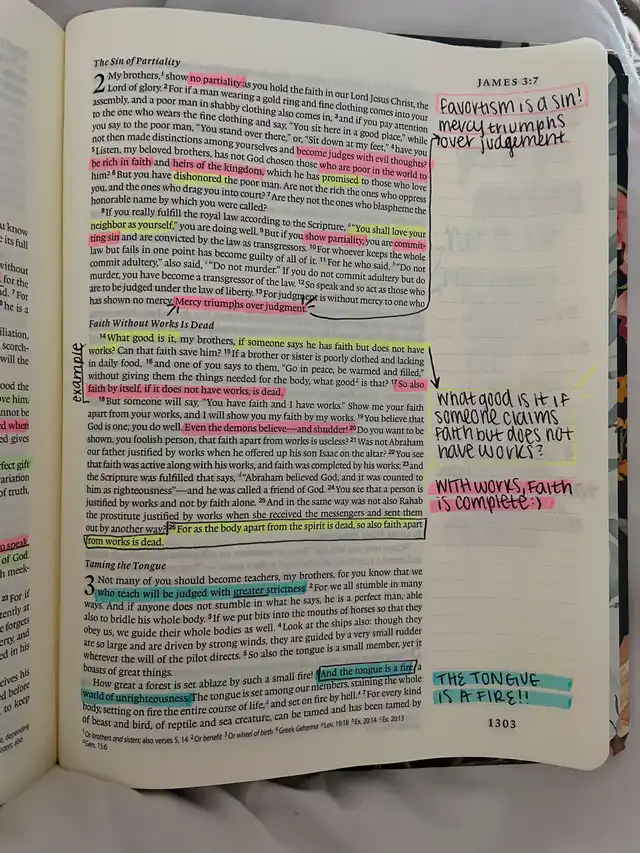 u know
e its full
without
for the
d. ⁷ For
he is a
iliation,
scorch-
will the
ood the
ove him.
nnot be
ed when
ed gives
rfect gift
ariation
of truth,
o speak,
of God.
h meek-
²³ For if
ently at
e forgets
erty, and
ed in his
eives his
d before
to keep
e, depending
The Sin of Partiality
2 My brothers,¹ show no partiality as you hold the faith in our Lord Jesus Christ, the
Lord of glory. ² For if a man wearing a gold ring and fine clothing comes into your
assembly, and a poor man in shabby clothing also comes in, ³ and if you pay attention
to the one who wears the fine clothing and say, "You sit here in a good place," while
you say to the poor man, "You stand over there," or, "Sit down at my feet," ⁴ have you
not then made distinctions among yourselves and become judges with evil thoughts?
⁵ Listen, my beloved brothers, has not God chosen those who are poor in the world to
be rich in faith and heirs of the kingdom, which he has promised to those who love
him? ⁶ But you have dishonored the poor man. Are not the rich the ones who oppress
you, and the ones who drag you into court? ⁷ Are they not the ones who blaspheme the
honorable name by which you were called?
⁸ If you really fulfill the royal law according to the Scripture, ᵃ"You shall love your
neighbor as yourself," you are doing well. ⁹ But if you show partiality, you are commit-
ting sin and are convicted by the law as transgressors. ¹⁰ For whoever keeps the whole
law but fails in one point has become guilty of all of it. ¹¹ For he who said, ᵇ"Do not
commit adultery," also said, ᶜ"Do not murder." If you do not commit adultery but do
murder, you have become a transgressor of the law. ¹² So speak and so act as those who
are to be judged under the law of liberty. ¹³ For judgment is without mercy to one who
has shown no mercy. Mercy triumphs over judgment.
Faith Without Works Is Dead
example
¹⁴ What good is it, my brothers, if someone says he has faith but does not have
works? Can that faith save him? ¹⁵ If a brother or sister is poorly clothed and lacking
in daily food, ¹⁶ and one of you says to them, "Go in peace, be warmed and filled,"
without giving them the things needed for the body, what good² is that? ¹⁷ So also
faith by itself, if it does not have works, is dead.
¹⁸ But someone will say, "You have faith and I have works." Show me your faith
apart from your works, and I will show you my faith by my works. ¹⁹ You believe that
God is one; you do well. Even the demons believe—and shudder! ²⁰ Do you want to be
shown, you foolish person, that faith apart from works is useless? ²¹ Was not Abraham
our father justified by works when he offered up his son Isaac on the altar? ²² You see
that faith was active along with his works, and faith was completed by his works; ²³ and
the Scripture was fulfilled that says, ᵈ"Abraham believed God, and it was counted to
him as righteousness"—and he was called a friend of God. ²⁴ You see that a person is
justified by works and not by faith alone. ²⁵ And in the same way was not also Rahab
the prostitute justified by works when she received the messengers and sent them
out by another way? ²⁶ For as the body apart from the spirit is dead, so also faith apart
from works is dead.
Taming the Tongue
3 Not many of you should become teachers, my brothers, for you know that we
who teach will be judged with greater strictness. ² For we all stumble in many
ways. And if anyone does not stumble in what he says, he is a perfect man, able
also to bridle his whole body. ³ If we put bits into the mouths of horses so that they
obey us, we guide their whole bodies as well. ⁴ Look at the ships also: though they
are so large and are driven by strong winds, they are guided by a very small rudder
wherever the will of the pilot directs. ⁵ So also the tongue is a small member, yet it
boasts of great things.
How great a forest is set ablaze by such a small fire! ⁶ And the tongue is a fire, a
world of unrighteousness. The tongue is set among our members, staining the whole
body, setting on fire the entire course of life,³ and set on fire by hell.⁴ ⁷ For every kind
of beast and bird, of reptile and sea creature, can be tamed and has been tamed by
¹ Or brothers and sisters; also verses 5, 14 ² Or benefit ³ Or wheel of birth ⁴ Greek Gehenna ᵃ Lev. 19:18 ᵇ Ex. 20:14 ᶜ Ex. 20:13
ᵈ Gen. 15:6
JAMES 3:7
favortism is a sin!
mercy triumphs
over judgement
What good is it if
someone claims
faith but does not
have works?
WITH WORKS, FAITH
IS COMPLETE :)
THE TONGUE
IS A FIRE!!
1303